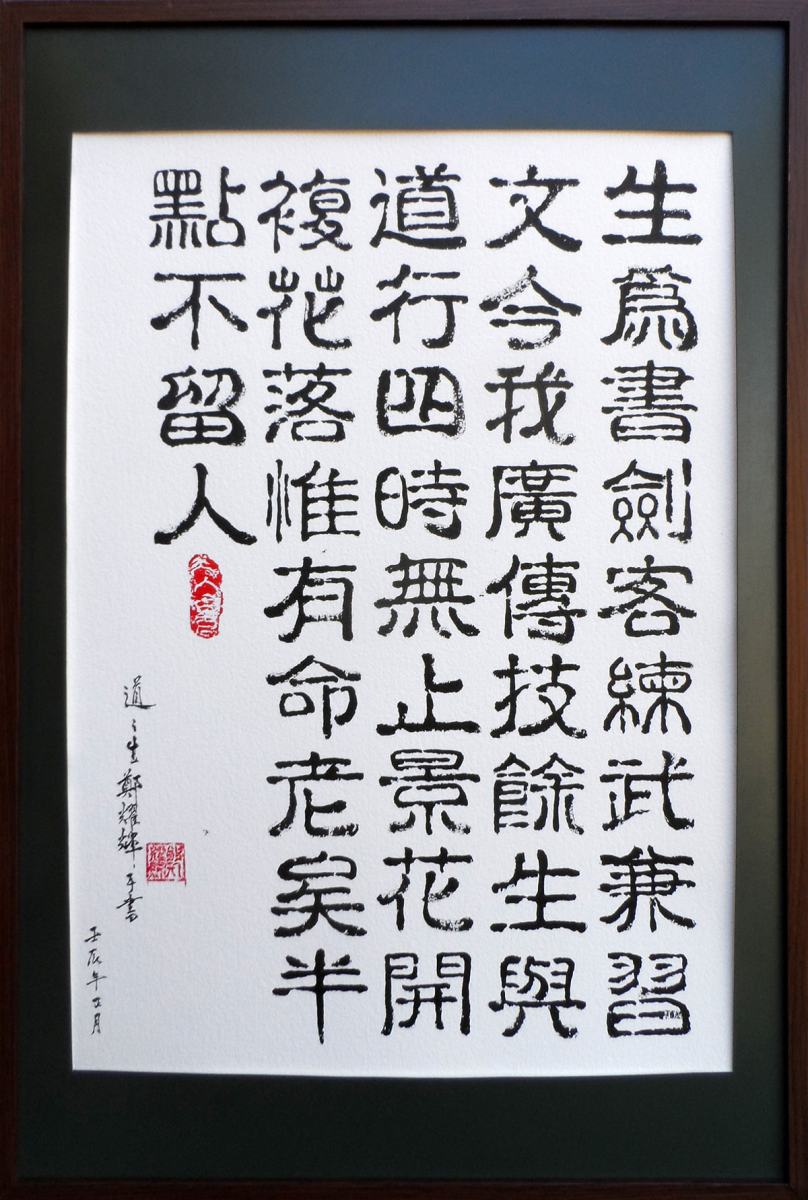 生為書劍客練武兼習
文今我廣傳技餘生與
道行四時無止景花開
複花落惟有命老矣半
點不留人
道之生鄭耀輝手書
壬辰年五月